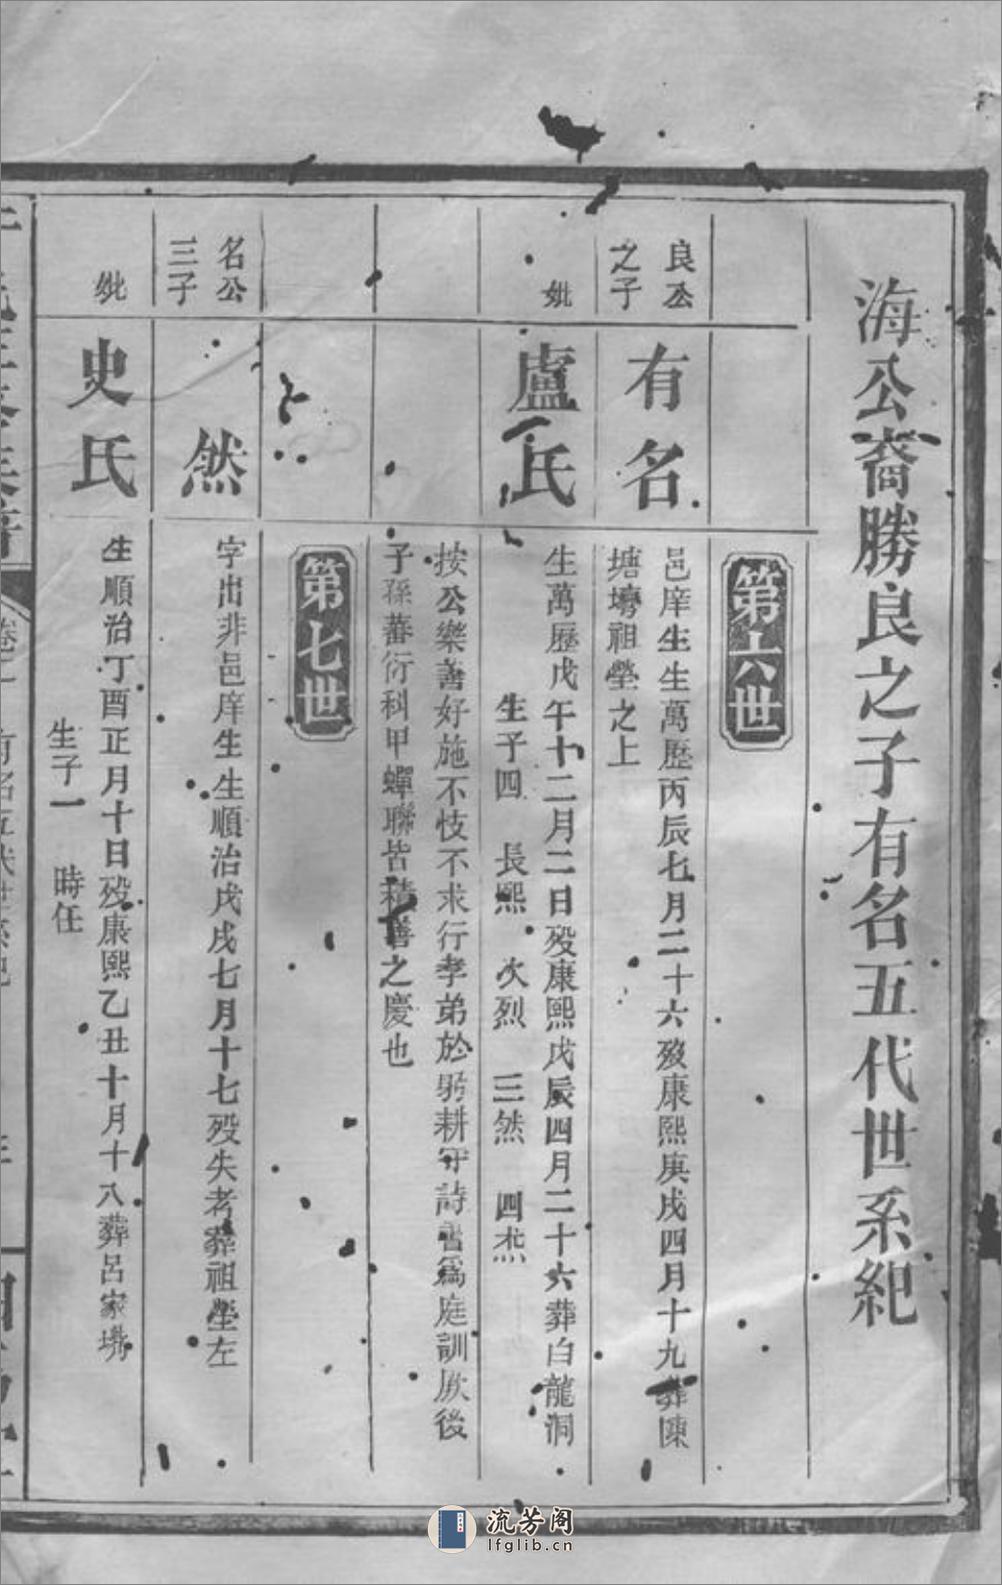 海公裔勝良之子有名五代世系紀
第六世
良公
之子
有名
邑庠生生萬歷丙辰七月二十六歿康熙庚戌四月十九葬陳
塘塆祖塋之上
妣
盧氏
生萬歷戊午十二月二日歿康熙戊辰四月二十六葬白龍洞
生子四 長熙 次烈 三然 四烋
按公樂善好施不忮不求行孝弟於躬耕守詩書爲庭訓厥後
子孫蕃衍科甲蟬聯皆積善之慶也
第七世
名公
三子
然
字出非邑庠生生順治戊戌七月十七歿失考葬祖塋左
妣
史氏
生順治丁酉正月十日歿康熙乙丑十月十八葬呂家塆
生子一 時任
流芳阁
lfglib.cn